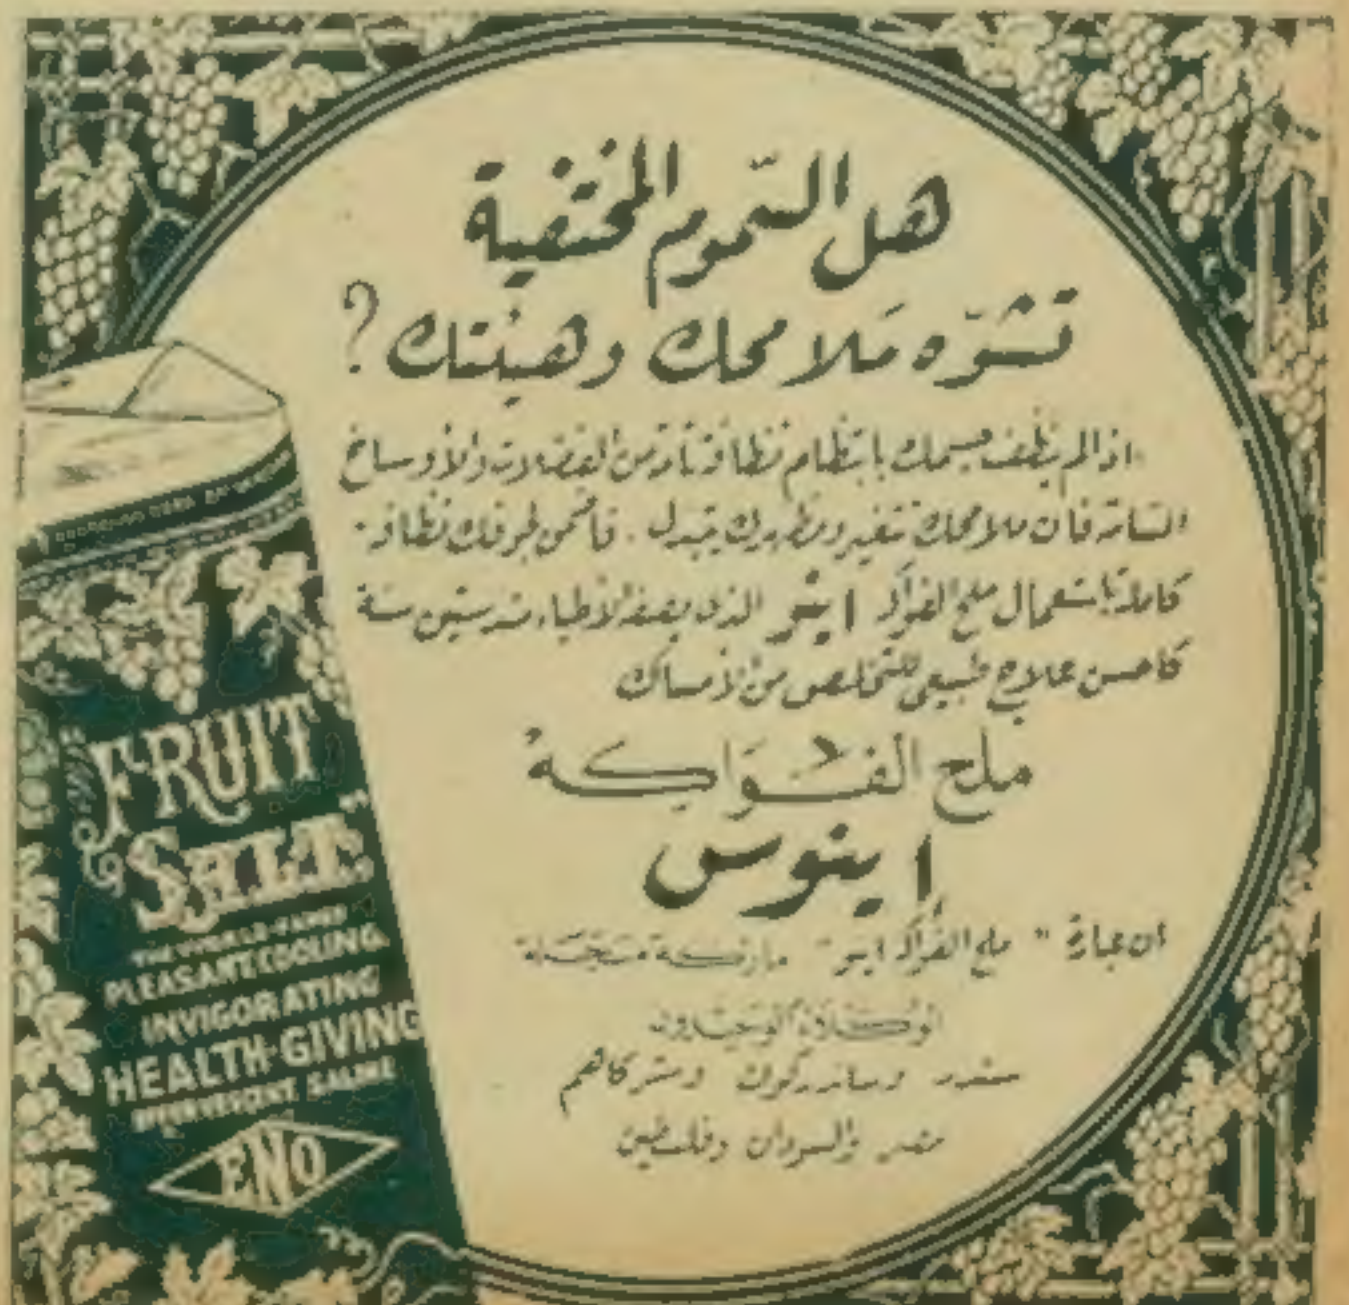 هل السّموم المختفية
تشوّه مَلامحك وهيئتك ؟
اذا لم ينظف جسمك بانتظام نظافة تامة من الفضلات والأوساخ
السامة فان ملامحك تتغير ومظهرك يتبدل . فاضمن لجوفك نظافة
كاملة باستعمال ملح الفواكه اينو الذي يصفه الأطباء منذ ستين سنة
كاحسن علاج طبيعي للتخلص من الأمساك
ملح الفَوَاكِهْ
اينوس
ان عبارة " ملح الفواكه اينو " ماركة مسَجّلة
الوكلاء الوحيدون
وشركاهم
مصر والسودان وفلسطين
"FRUIT
SALT."
THE WORLD-FAMED
PLEASANT COOLING
INVIGORATING
HEALTH-GIVING
EFFERVESCENT SALINE
ENO